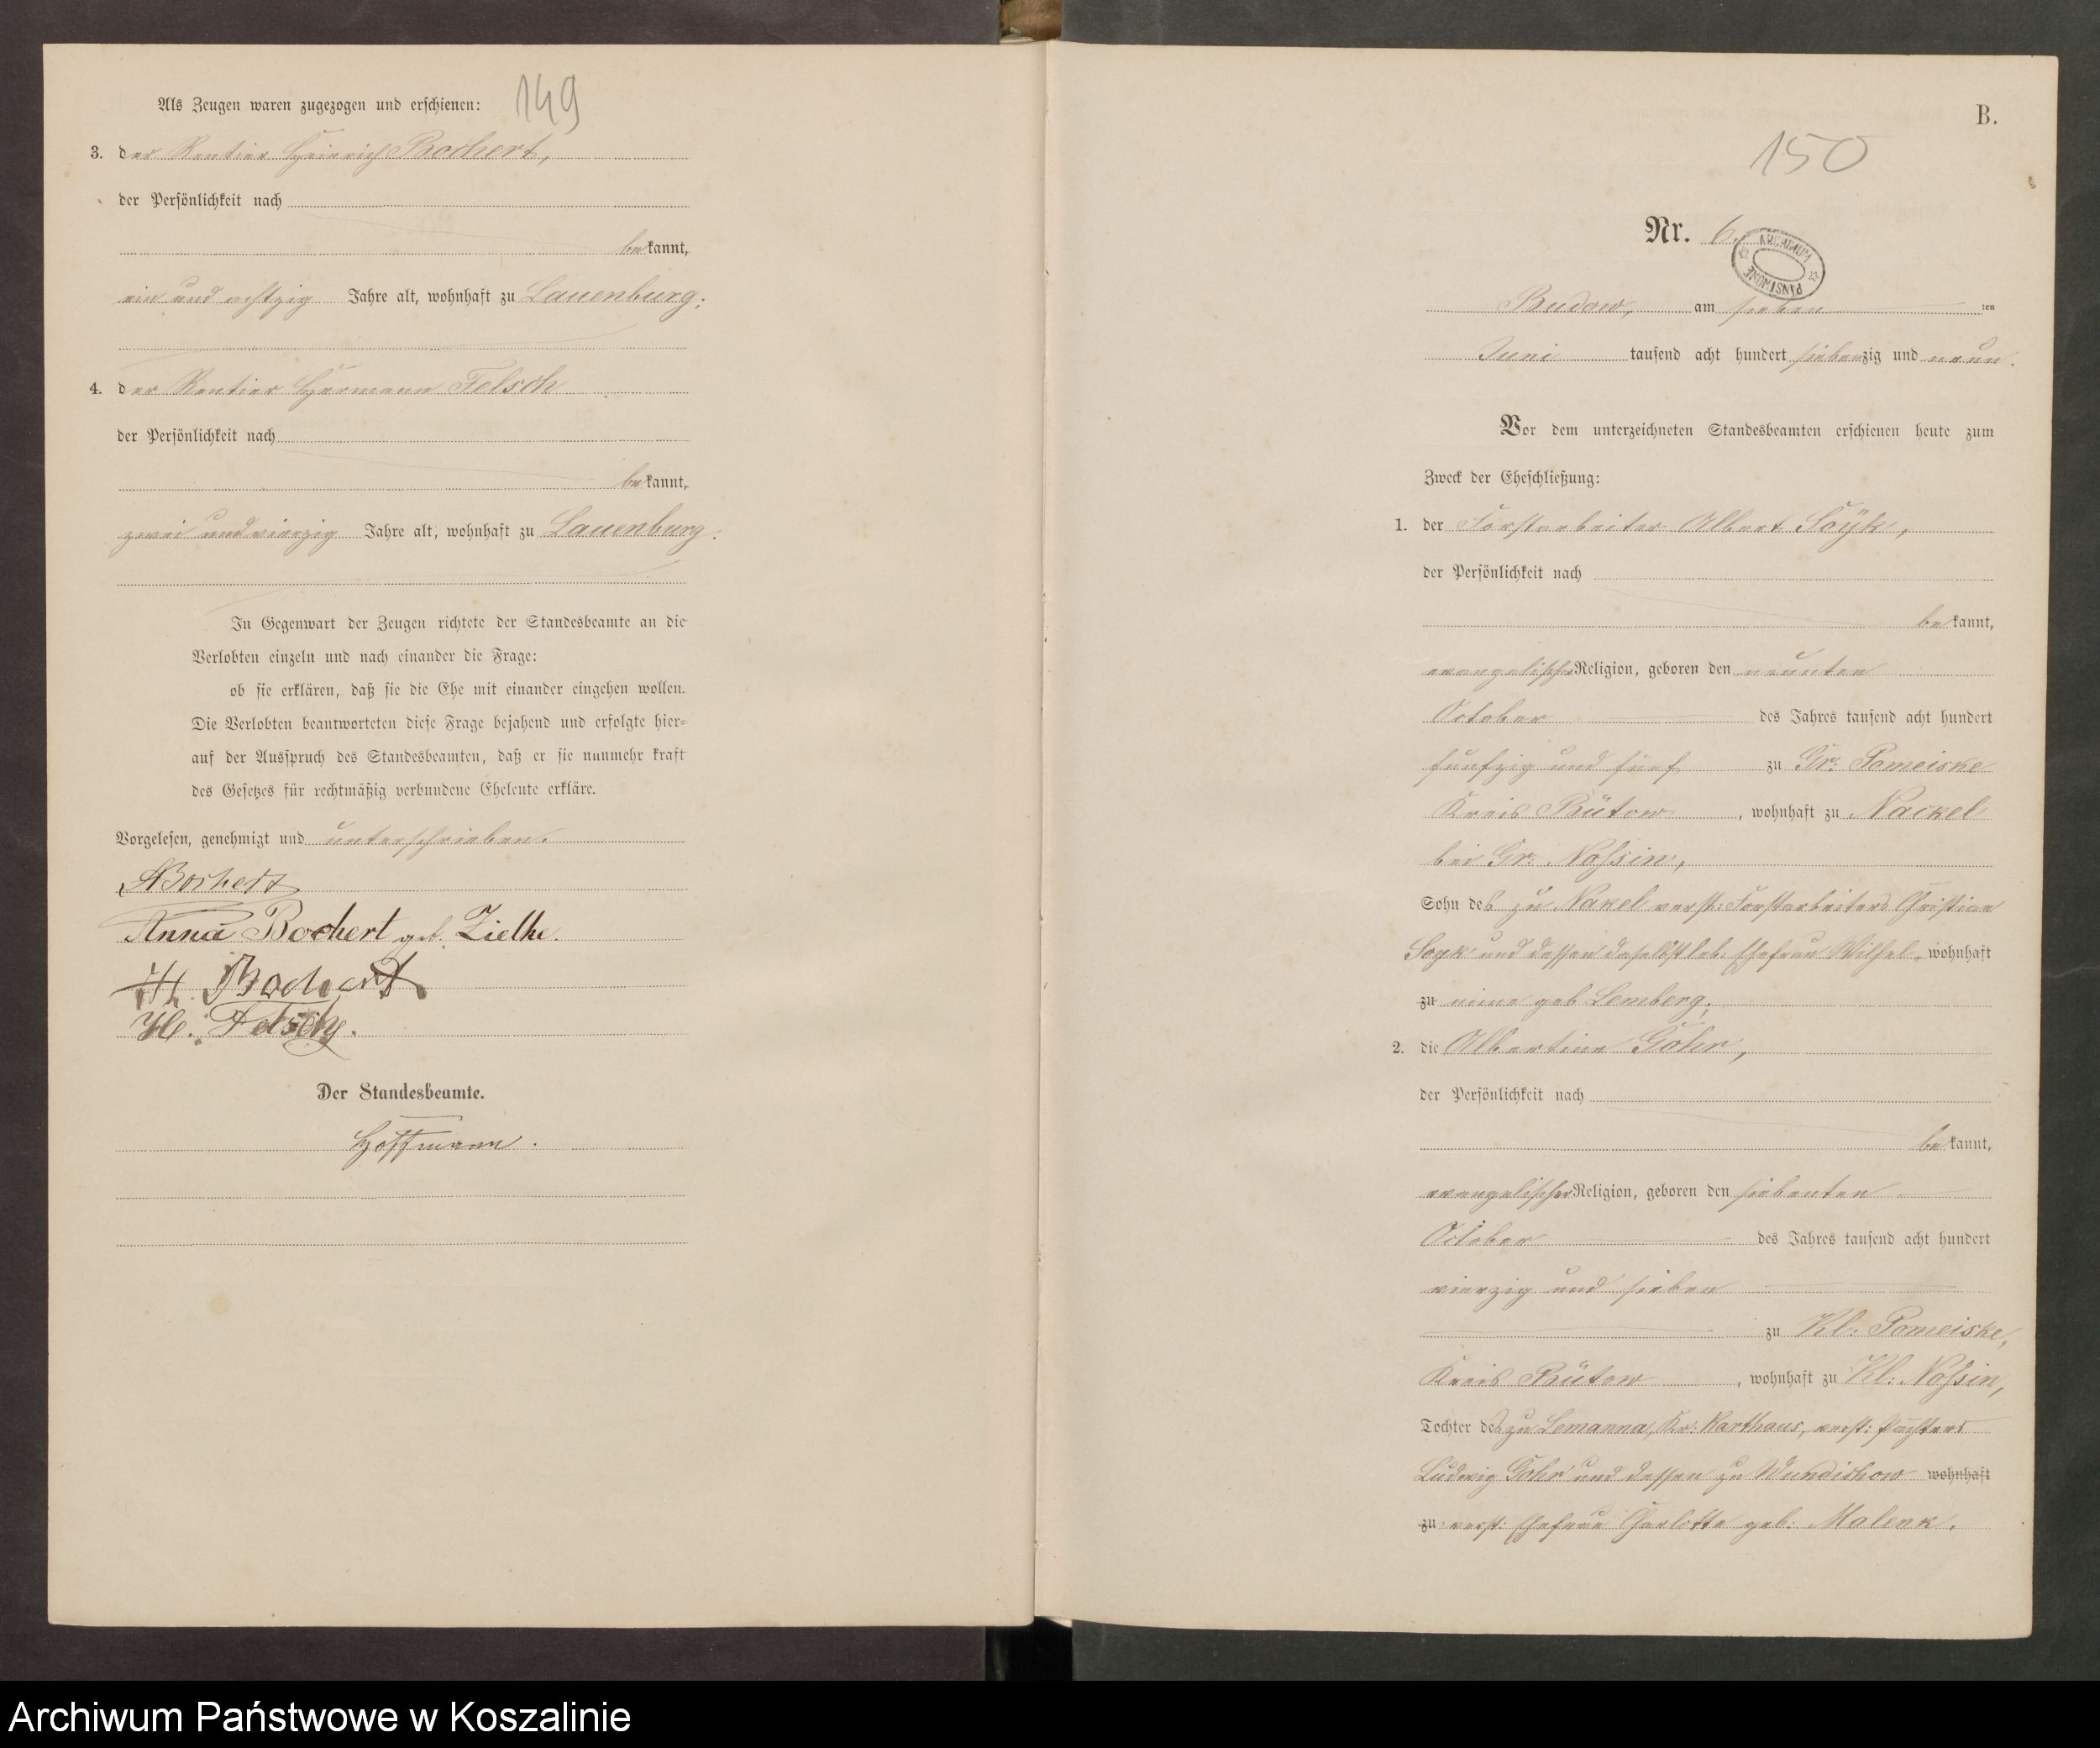 149
Als Zeugen waren zugezogen und erschienen:
3. der Rentier Heinrich Bochert,
der Persönlichkeit nach
bekannt,
ein und achtzig Jahre alt, wohnhaft zu Lauenburg;
4. der Rentier Hermann Felsch
der Persönlichkeit nach
bekannt,
zwei und vierzig Jahre alt, wohnhaft zu Lauenburg.
In Gegenwart der Zeugen richtete der Standesbeamte an die
Verlobten einzeln und nach einander die Frage:
ob sie erklären, daß sie die Ehe mit einander eingehen wollen.
Die Verlobten beantworteten diese Frage bejahend und erfolgte hier-
auf der Ausspruch des Standesbeamten, daß er sie nunmehr kraft
des Gesetzes für rechtmäßig verbundene Eheleute erkläre.
Vorgelesen, genehmigt und unterschrieben.
Bochert
Anna Bochert geb. Zielke.
H. Bochert
He. Felsch.
Der Standesbeamte.
Hoffmann.
B.
150
Nr. 6.
ARCHIWUM PAŃSTWOWE
Budow, am sieben ten
Juni tausend acht hundert siebenzig und neun.
Vor dem unterzeichneten Standesbeamten erschienen heute zum
Zweck der Eheschließung:
1. der Forstarbeiter Albert Soyk,
der Persönlichkeit nach
bekannt,
evangelischer Religion, geboren den neunten
October des Jahres tausend acht hundert
funfzig und fünf zu Gr. Pomeiske
Kreis Bütow, wohnhaft zu Nackel
bei Gr. Nossin,
Sohn des zu Nakel verst: Forstarbeiters Christian
Soyk und dessen daselbst leb: Ehefrau Wilhel- wohnhaft
zu mine geb Lemberg;
2. die Albertine Gohr,
der Persönlichkeit nach
bekannt,
evangelischer Religion, geboren den siebenten
October des Jahres tausend acht hundert
vierzig und sieben
zu Kl: Pomeiske,
Kreis Bütow, wohnhaft zu Kl: Nossin,
Tochter des zu Lemanna, Kr: Karthaus, verst: Pächters
Ludwig Gohr und dessen zu Wundichow wohnhaft
zu verst: Ehefrau Charlotte geb: Malenk.
Archiwum Państwowe w Koszalinie